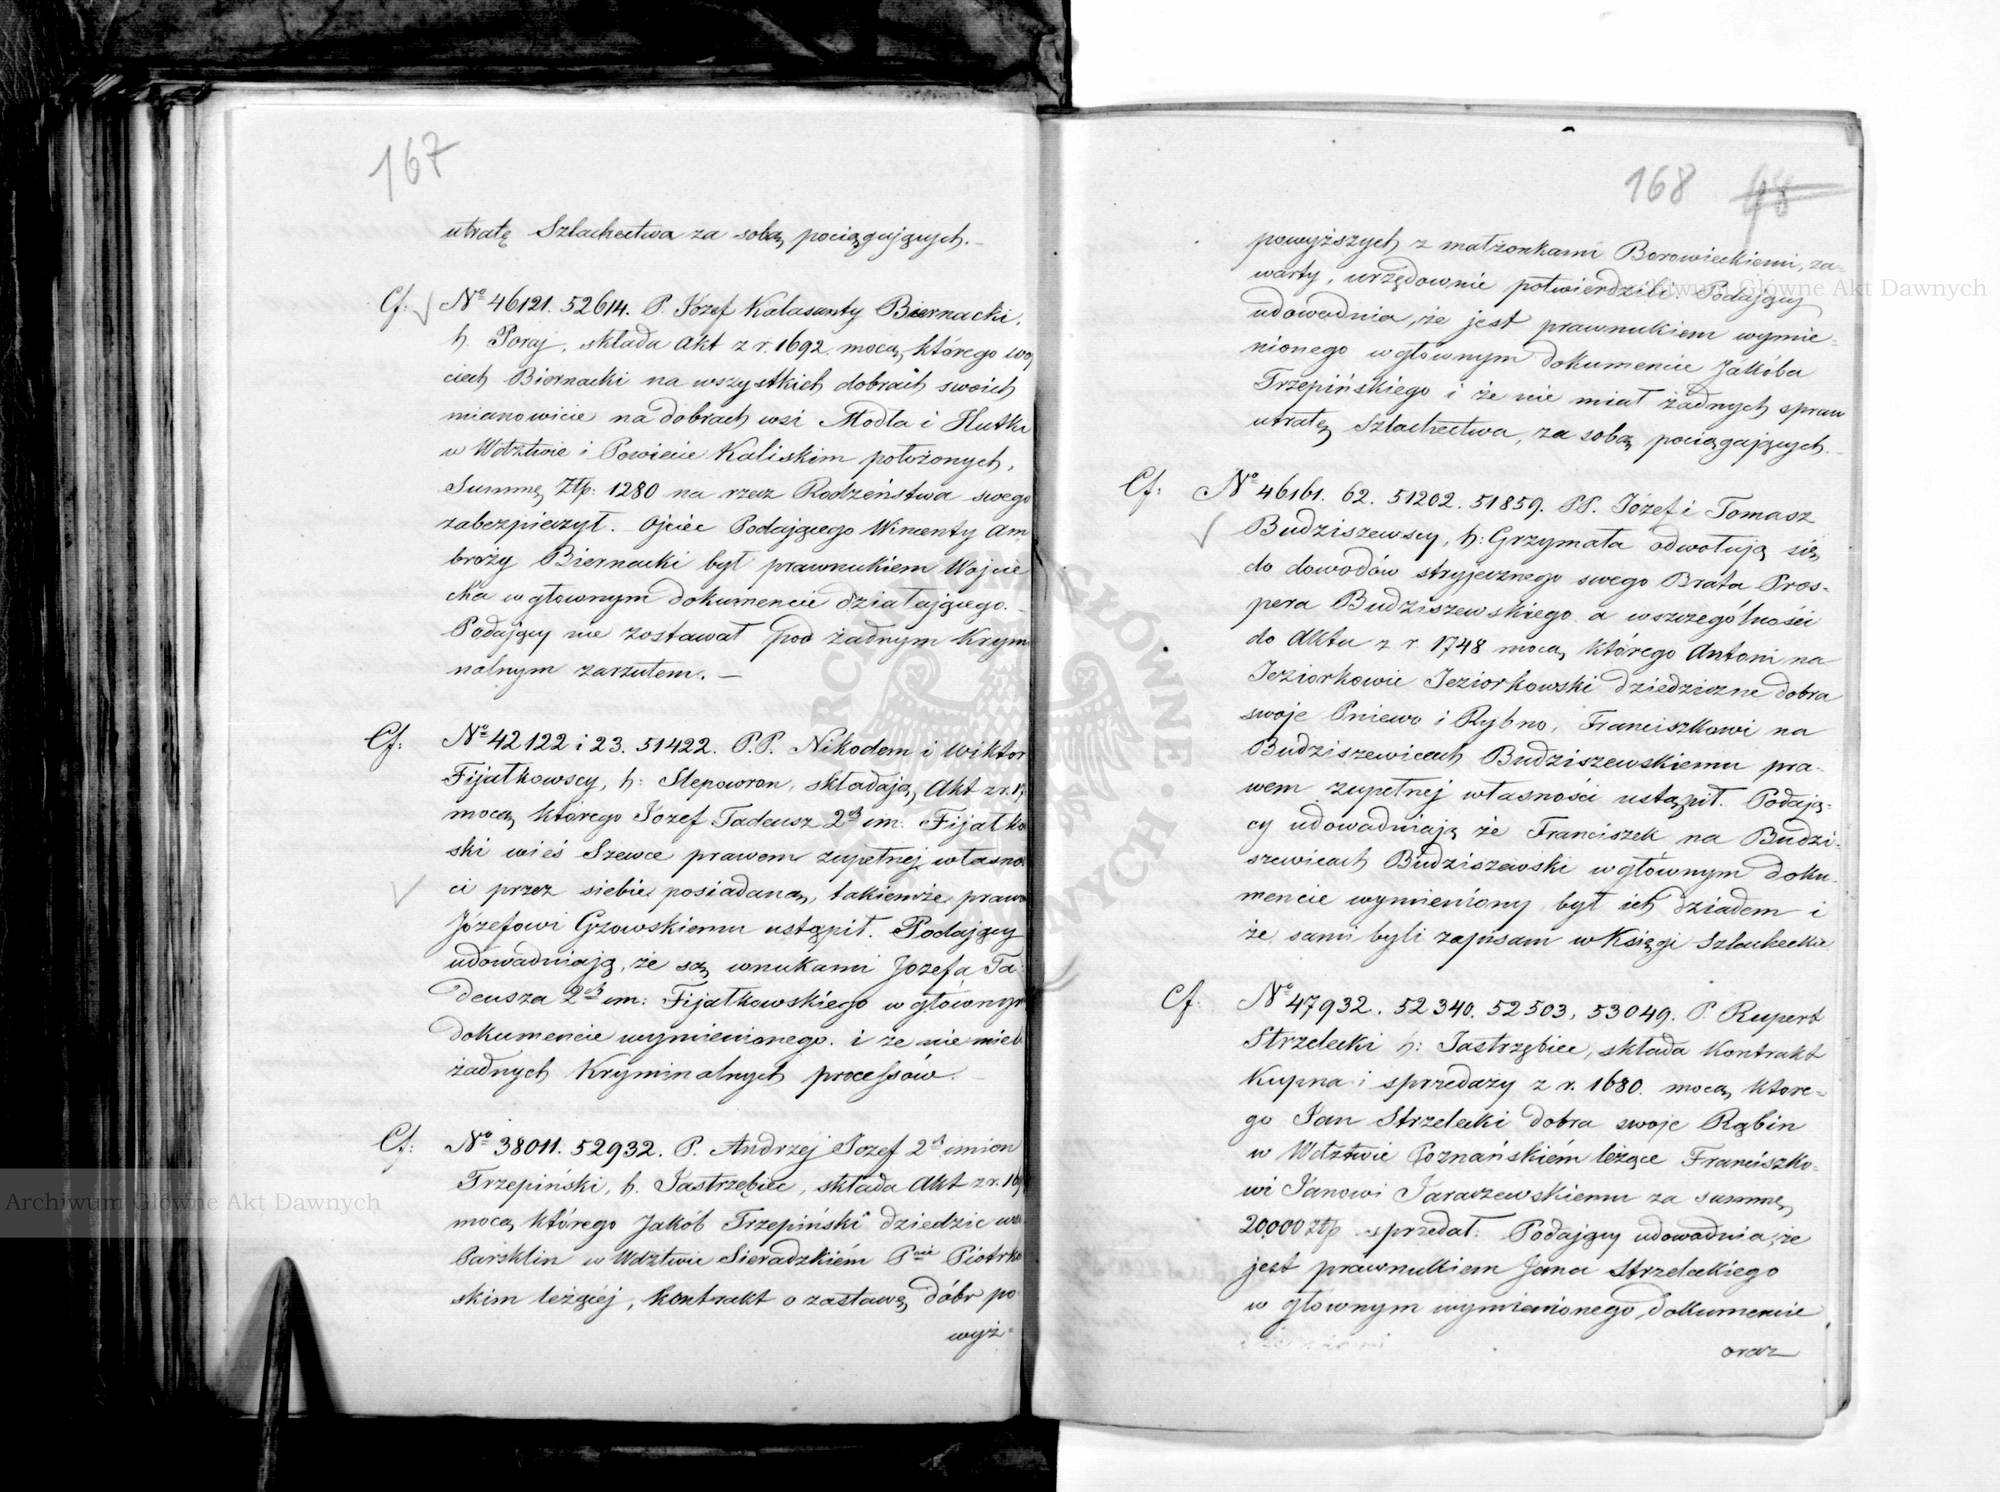 167
utratę Szlachectwa za sobą pociągających.
Cf: № 46121. 52614. P. Józef Kalasanty Biernacki,
h. Poraj, składa Akt z r. 1692. mocą którego Woj
ciech Biernacki na wszystkich dobrach swoich
mianowicie na dobrach wsi Modła i Hutka
w Wdztwie i Powiecie Kaliskim położonych,
Summę Złp: 1280 na rzecz Rodzeństwa swego
zabezpieczył. Ojciec Podającego Wincenty Am
broży Biernacki był prawnukiem Wojcie
cha w głownym dokumencie działającego.
Podający nie zostawał pod żadnym Krym
nalnym zarzutem. —
Cf: № 42122 i 23. 51422. P.P. Nikodem i Wiktor
Fijałkowscy, h: Slepowron, składają Akt z r. 1
mocą którego Jozef Tadeusz 2ch im: Fijałko
ski wieś Szewce prawem zupełnej własno
ci przez siebie posiadaną, takiemże prawe
Józefowi Gzowskiemu ustąpił. Podający
udowadniają, że są wnukami Jozefa Ta-
deusza 2ch im: Fijałkowskiego w głównym
dokumencie wymienionego. i ze nie mieli
żadnych Kryminalnych processów. —
Cf: № 38011. 52932. P. Andrzej Jozef 2ch imion
Trzepiński, h. Jastrzębiec, składa Akt z r. 16
mocą którego Jakób Trzepiński dziedzic wsi
Parsklin w Wdztwie Sieradzkiém Pcie Piotrko
skim leżącéj, Kontrakt o zastawę dóbr po
wyż-
168
powyższych z małżonkami Borowieckiemi, za-
warty, urzędownie potwierdził. Podający
udowadnia, że jest prawnukiem wymie-
nionego w głównym dokumencie Jakóba
Trzepińskiego i że nie miał żadnych spraw
utratę Szlachectwa, za sobą pociągających.
Cf: № 46161. 62. 51202. 51859. PP. Józef i Tomasz
Budziszewscy, h: Grzymała odwołują się
do dowodów stryjecznego swego Brata Pros-
pera Budziszewskiego a wszczególności
do Aktu z r. 1748 mocą którego Antoni na
Jeziorkowie Jeziorkowski dziedziczne dobra
swoje Pniewo i Rybno, Franciszkowi na
Budziszewicach Budziszewskiemu pra-
wem zupełnej własności ustąpił. Podają-
cy udowadniają że Franciszek na Budzi-
szewicach Budziszewski w głównym doku-
mencie wymieniony był ich dziadem i
że sami byli zapisani w Księgi Szlacheckie
Cf: № 47932. 52340. 52503, 53049. P. Rupert
Strzelecki h: Jastrzębiec, składa Kontrakt
Kupna i sprzedaży z r. 1680. mocą które-
go Jan Strzelecki dobra swoje Rąbin
w Wdztwie Poznańskiém leżące Franciszko-
wi Janowi Taraszewskiemu za summę
20,000 złp. sprzedał. Podający udowadnia, że
jest prawnukiem Jana Strzeleckiego
w głownym wymienionego dokumencie
oraz
Archiwum Główne Akt Dawnych
Archiwum Główne Akt Dawnych